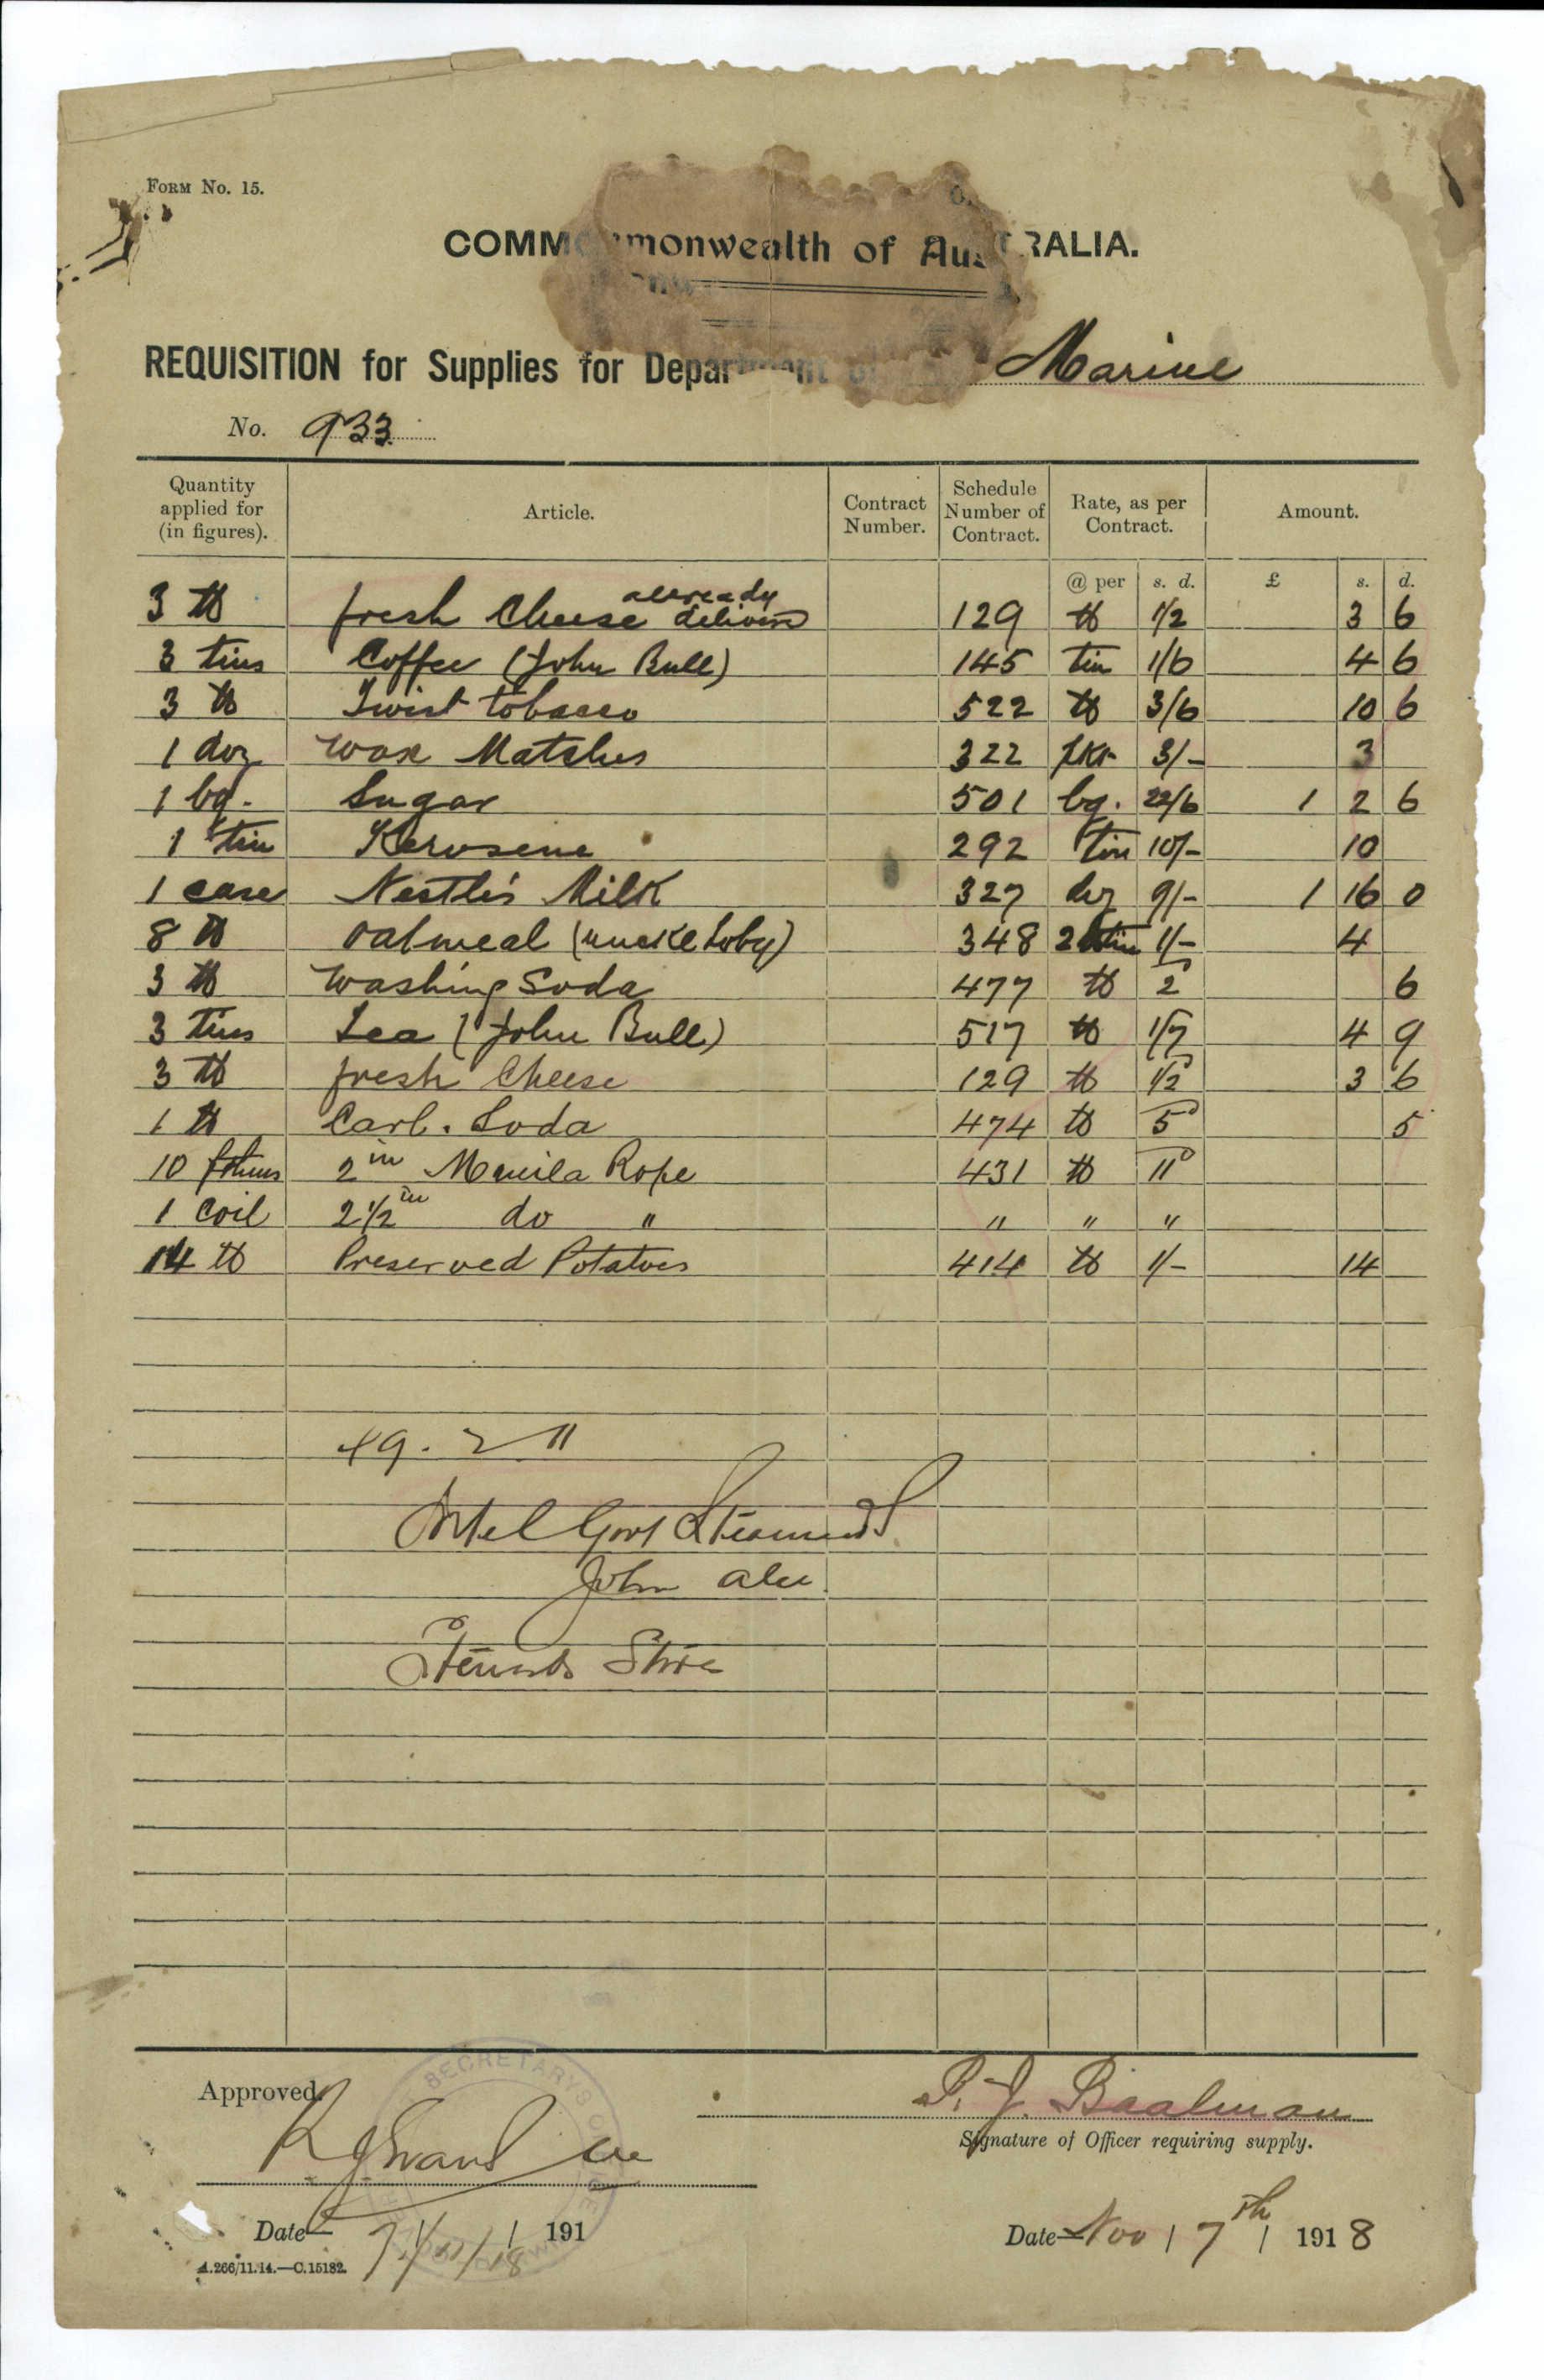 FORM No. 15.
COMMonwealth of AusTRALIA.
REQUISITION for Supplies for Department of Marine
No. 933
Quantity applied for (in figures). Article. Contract Number. Schedule Number of Contract. Rate, as per Contract. Amount.
@ per s. d. £ s. d.
allready
3 lb fresh Cheese deliverd 129 lb 1/2 3 6
3 tins Coffee (John Bull) 145 tin 1/6 4 6
3 lb Twist tobacco 522 lb 3/6 10 6
1 doz Wax Matches 322 pkt 3/- 3
1 bg. Sugar 501 bg. 22/6 1 2 6
1 tin Kerosene 292 tin 10/- 10
1 case Nestle's Milk 327 doz 9/- 1 16 0
8 lb Oatmeal 348 2 lb tin 1/- 4
3 lb Washing Soda 477 lb 2 6
3 Tins Tea (John Bull) 517 lb 1/7 4 9
3 lb fresh Cheese 129 lb 1/2 3 6
1 lb Carb. Soda 474 lb 5 5
10 fthms 2 in Manila Rope 431 lb 11
1 Coil 2 1/2 in do " " " "
14 lb Preserved Potatoes 414 lb 1/- 14
49. 2 11
Govt
John
Store
Approved,
P. J. Baalman
Signature of Officer requiring supply.
SECRETARY'S
Date— 7/11/18 191
Date—Nov / 7th / 1918
A.266/11.14.—C.15182.